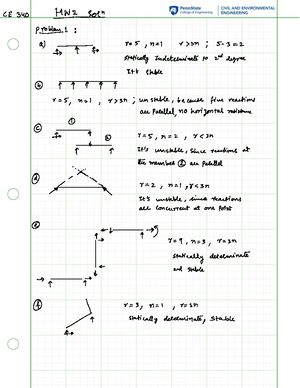 CE 340
HW2 Solⁿ
PennState
College of Engineering
CIVIL AND ENVIRONMENTAL
ENGINEERING
Problem 1:
a)
r=5, n=1 r>3n ; 5-3=2
statically Indeterminate to 2nd degree
It's stable
b
r=5, n=1, r>3n ; unstable, because five reactions
are parallel, no horizontal resistance
c
①
②
r=5, n=2, r<3n
It's unstable, since reactions at
the member ② are parallel
d
r=2, n=1, r<3n
It's unstable, since reactions
are concurrent at one point
e
r=9, n=3, r=3n
statically determinate
and stable
f
r=3, n=1, r=3n
statically determinate, stable